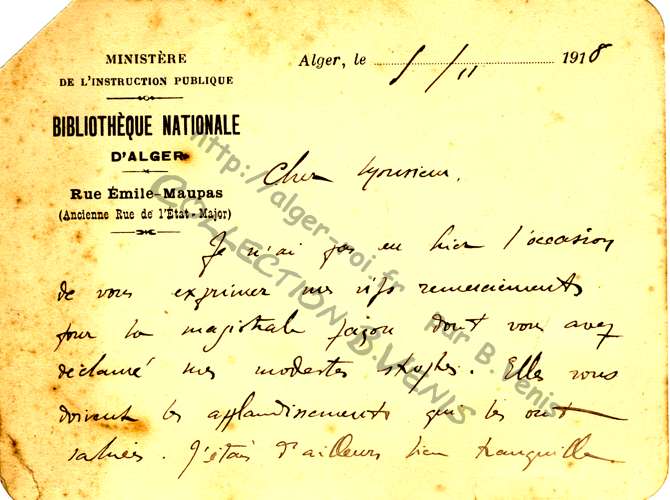 MINISTÈRE
DE L'INSTRUCTION PUBLIQUE
BIBLIOTHÈQUE NATIONALE
D'ALGER
Rue Émile-Maupas
(Ancienne Rue de l'État-Major)
Alger, le 5/11 1918
Cher Monsieur.
Je n'ai pas eu hier l'occasion
de vous exprimer mes vifs remerciements
pour la magistrale façon dont vous avez
déclamé mes modestes strophes. Elles vous
doivent les applaudissements qui les ont
saluées. J'étais d'ailleurs bien tranquille
http://alger-roi.fr par B. Venis
COLLECTION B.VENIS